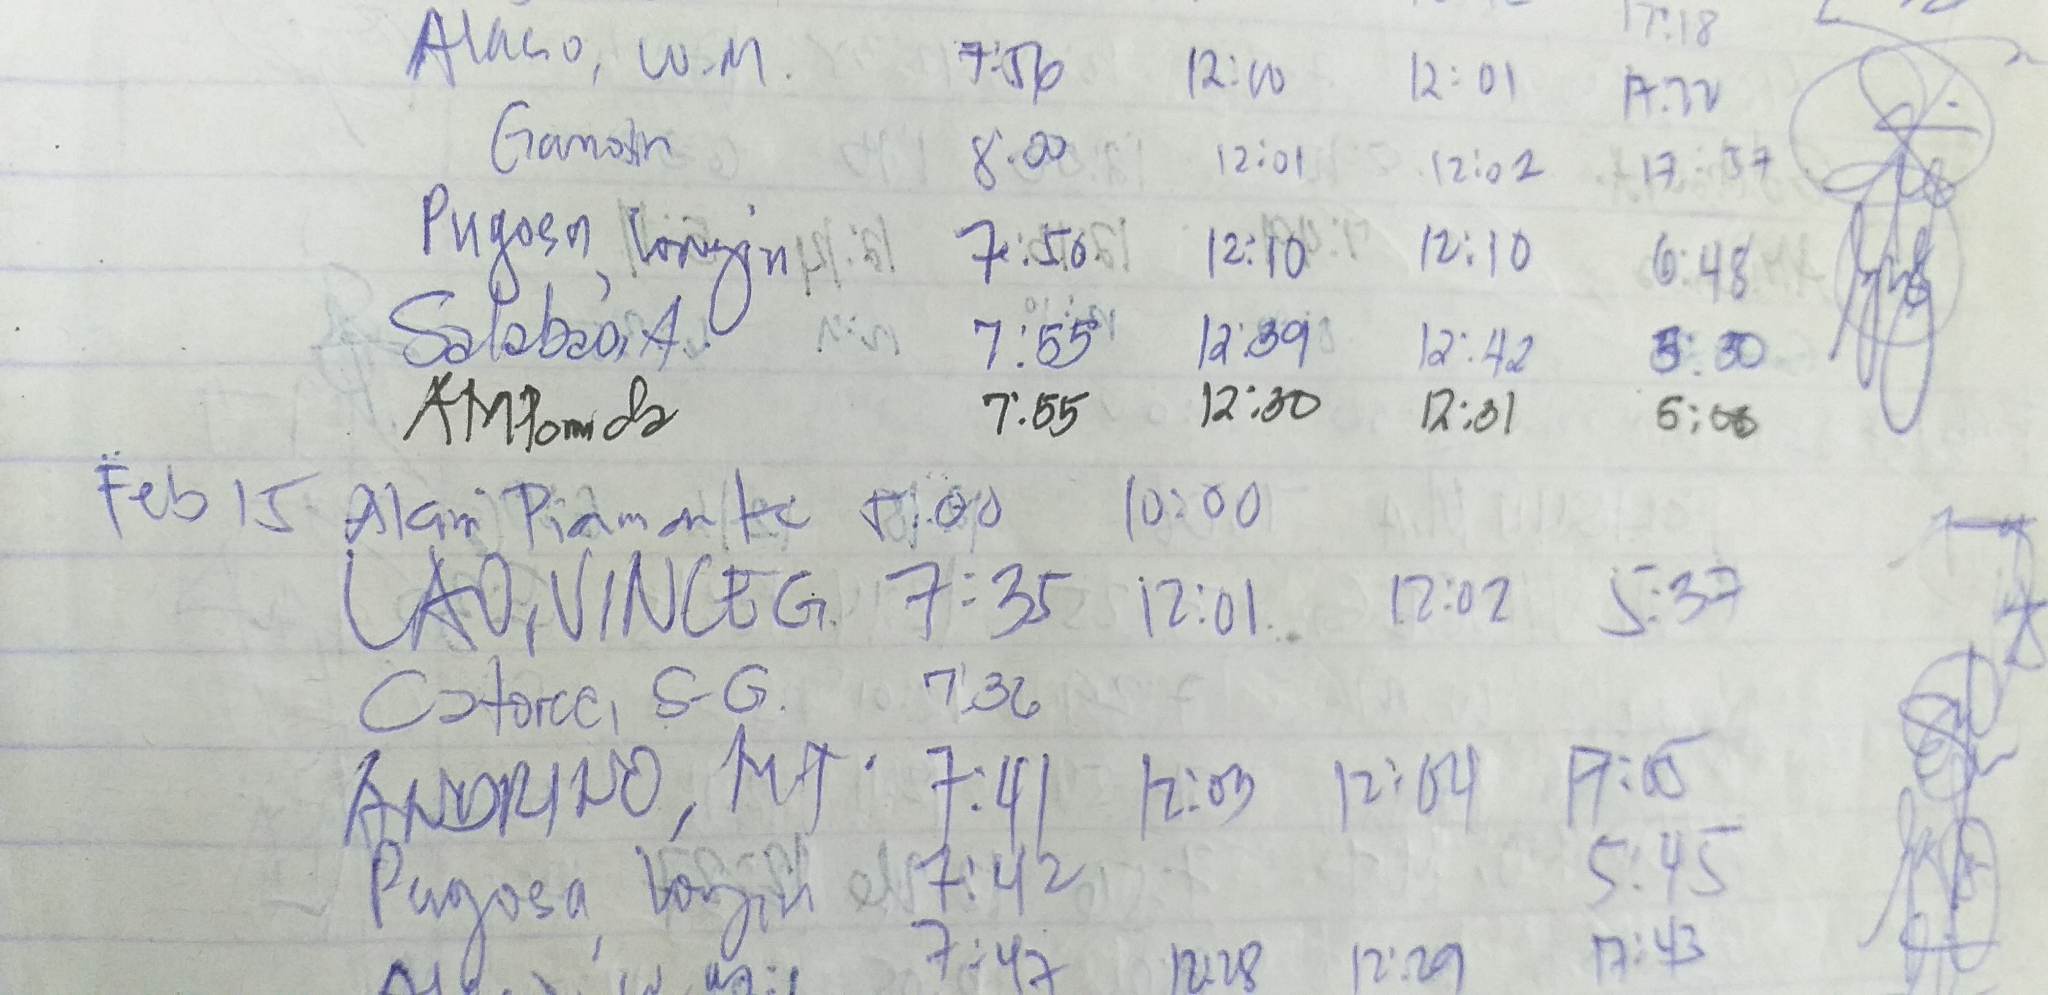 17:18
Alaso, W.M. 7:56 12:00 12:01 17:32
Ganotin 8:00 12:01 12:02 17:57
Pugosa, Longin 7:50 12:10 12:10 6:48
Salabao, A. 7:55 12:39 12:42 5:30
7:55 12:30 12:31 5:08
Feb 15 Alan Piamonte 5:00 10:00
LAO, VINCE G. 7:35 12:01 12:02 5:37
Catorce, S.G. 7:36
ANDRINO, MJ. 7:41 12:03 12:04 17:05
Pugosa, Longin 7:42 5:45
7:47 12:28 12:29 17:43